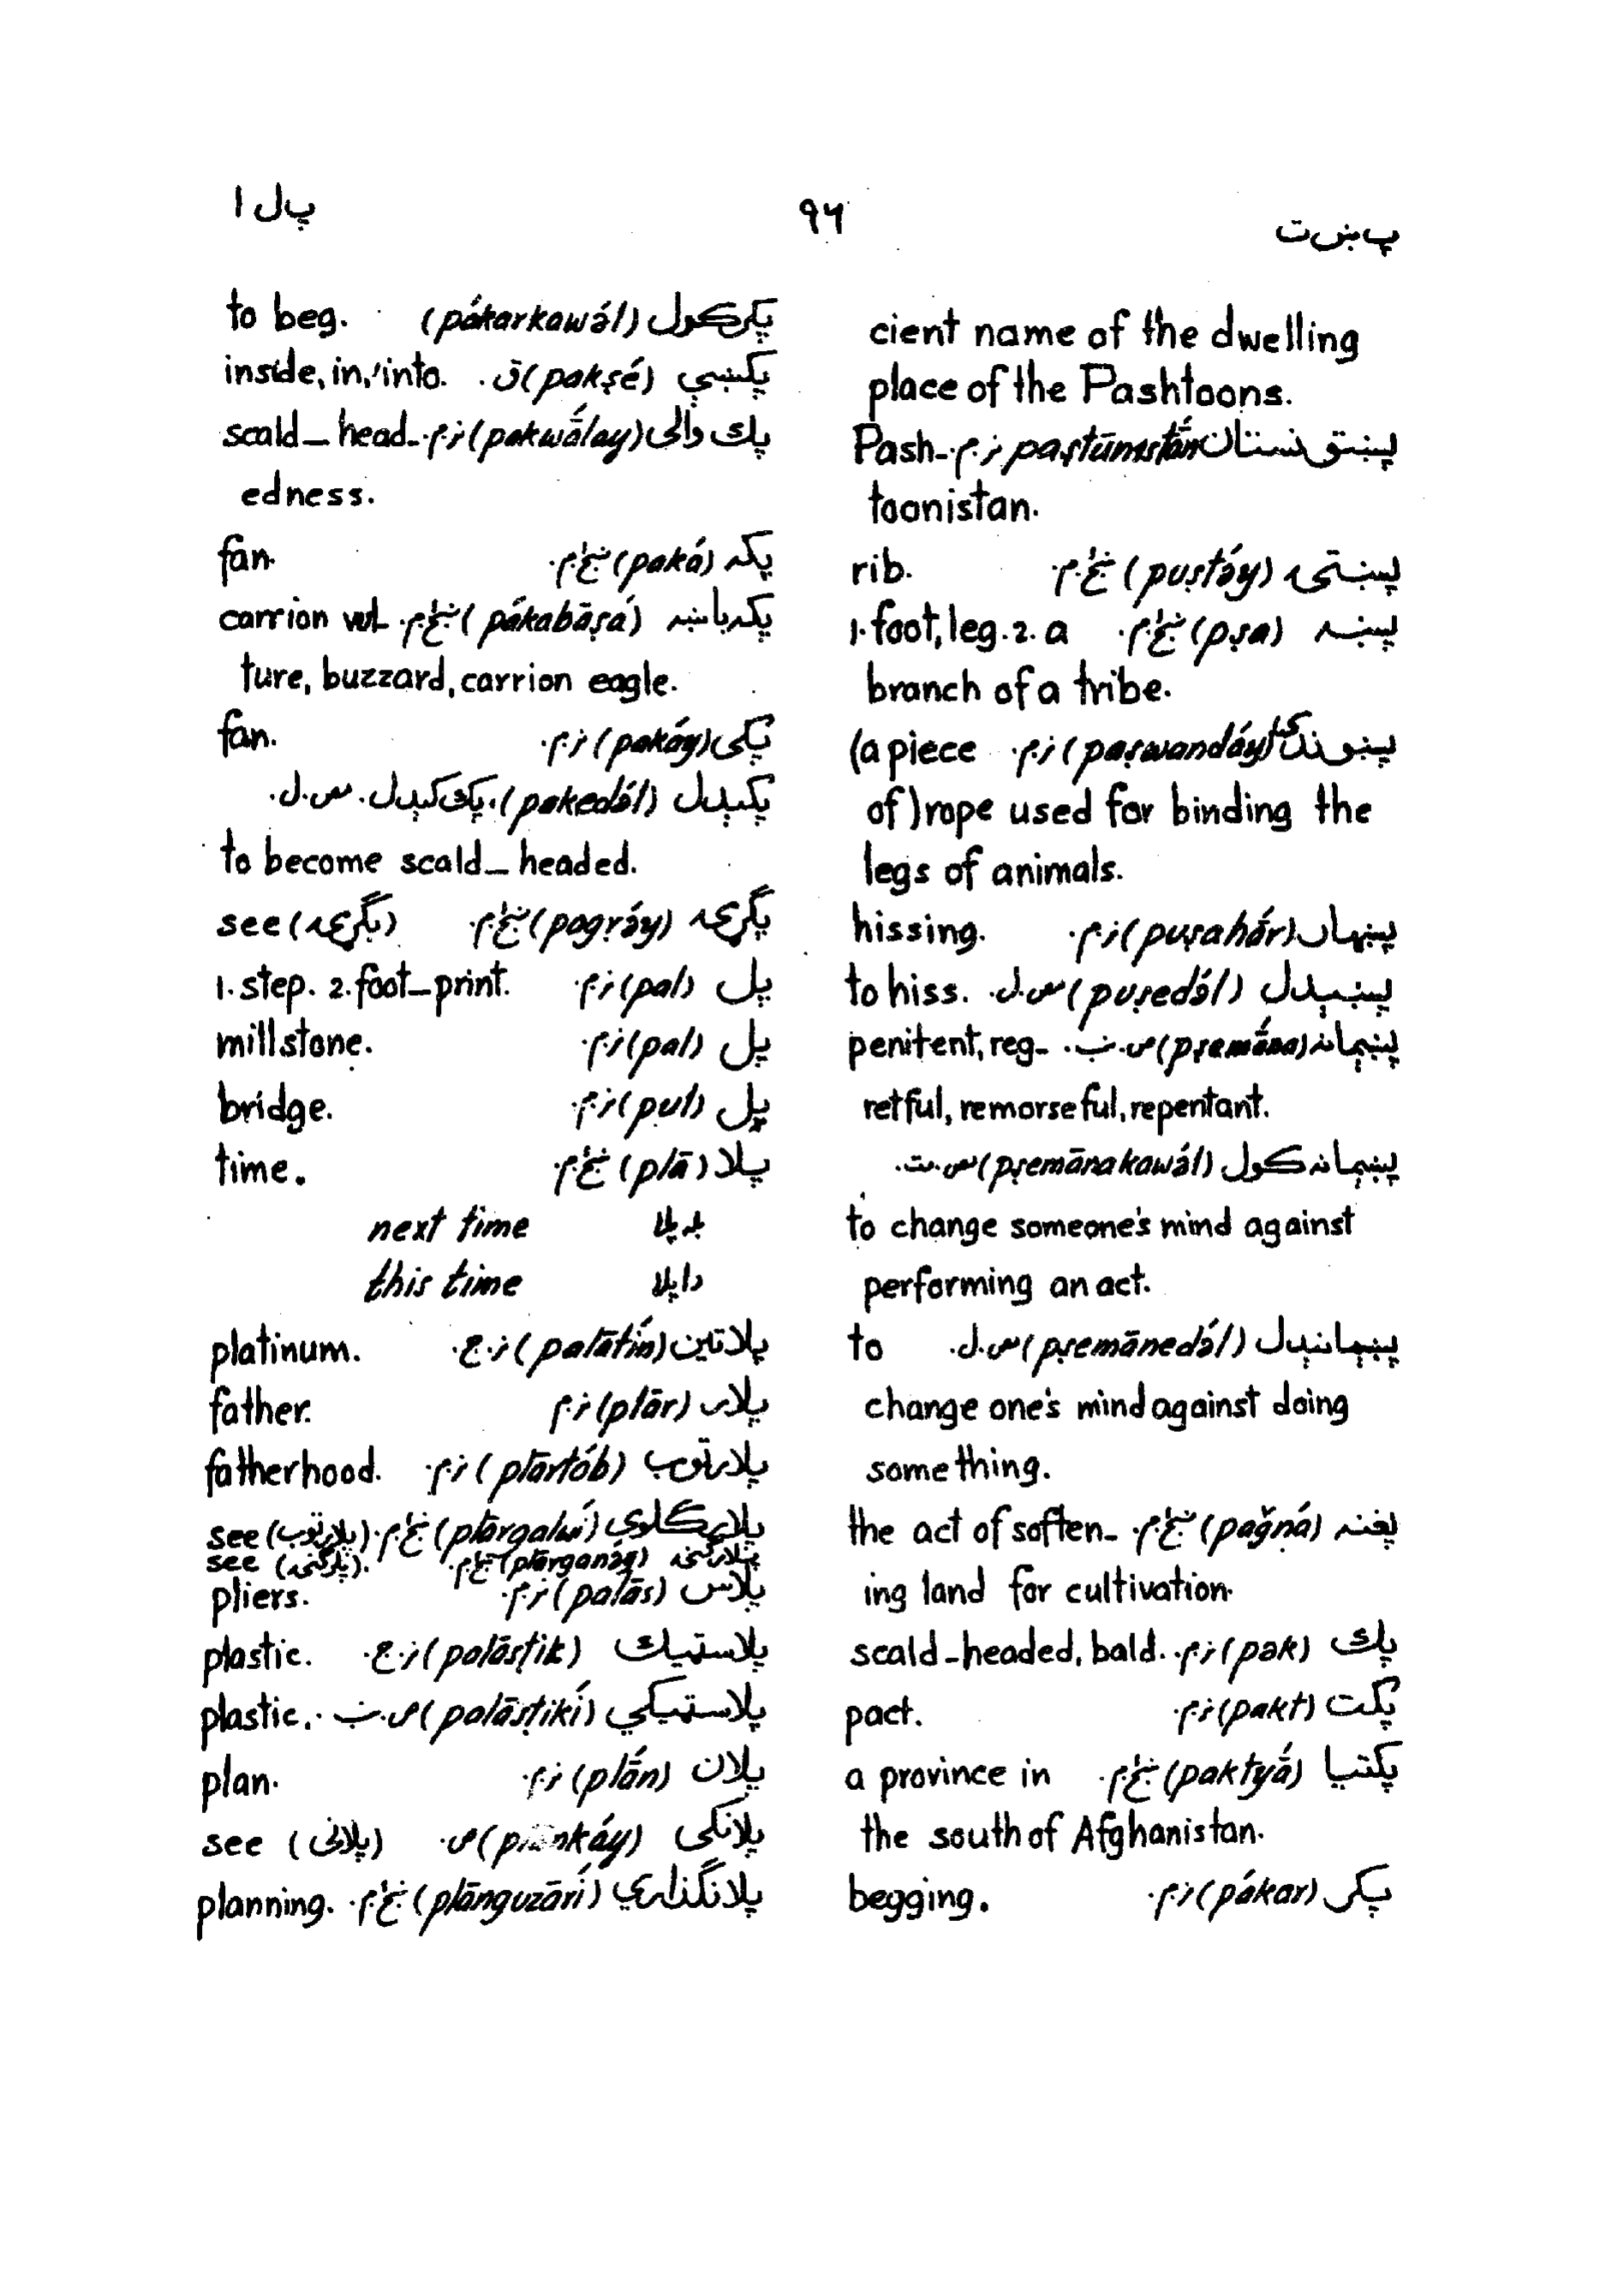 پ ښ ت ۹۶ پ ل ا
cient name of the dwelling
place of the Pashtoons.
پښتونستان paṣ̌tūnistā́n ن.م. Pash-
toonistan.
پښتۍ (puṣtə́y) ښځ.م. rib.
پښه (pṣa) ښځ.م. 1. foot, leg. 2. a
branch of a tribe.
پښوندکی (paṣwandáy) ن.م. (a piece
of) rope used for binding the
legs of animals.
پښهار (puṣahā́r) ن.م. hissing.
پښېدل (puṣedə́l) مص.ل. to hiss.
پښېمانه (pṣemā́na) ص.ب. penitent, reg-
retful, remorseful, repentant.
پښېمانه کول (pṣemāna kawə́l) مص.مت.
to change someone's mind against
performing an act.
پښېمانېدل (pṣemānedə́l) مص.ل. to
change one's mind against doing
something.
پغنه (paǧná) ښځ.م. the act of soften-
ing land for cultivation.
پك (pak) ن.م. scald-headed, bald.
پکت (pakt) ن.م. pact.
پکتیا (paktyā́) ښځ.م. a province in
the south of Afghanistan.
پکر (pákar) ن.م. begging.
پکرکول (pákarkawə́l) to beg.
پکښې (pakṣé) ق. inside, in, into.
پك والی (pakwā́lay) ن.م. scald-head-
edness.
پکه (paká) ښځ.م. fan.
پکه باښه (pákabāṣá) ښځ.م. carrion vul-
ture, buzzard, carrion eagle.
پکی (pakáy) ن.م. fan.
پکېدل (pakedə́l)، پك کېدل. مص.ل.
to become scald-headed.
پګړۍ (pagṛə́y) ښځ.م. see (بګړۍ)
پل (pal) ن.م. 1. step. 2. foot-print.
پل (pal) ن.م. millstone.
پل (pul) ن.م. bridge.
پلا (plā) ښځ.م. time.
بله پلا next time
دا پلا this time
پلاتین (palātín) ن.ج. platinum.
پلار (plār) ن.م. father.
پلارتوب (plārtób) ن.م. fatherhood.
پلارګلوي (plārgalwí) ښځ.م. see (پلارتوب)
پلارګنۍ (plārganə́y) ښځ.م. see (پلرګنۍ).
پلاس (palās) ن.م. pliers.
پلاستیك (palāsṭik) ن.ج. plastic.
پلاستیکي (palāsṭikí) ص.ب. plastic.
پلان (plā́n) ن.م. plan.
پلانکی ص. see (پلانی)
پلانګذاري (plānguzārí) ښځ.م. planning.